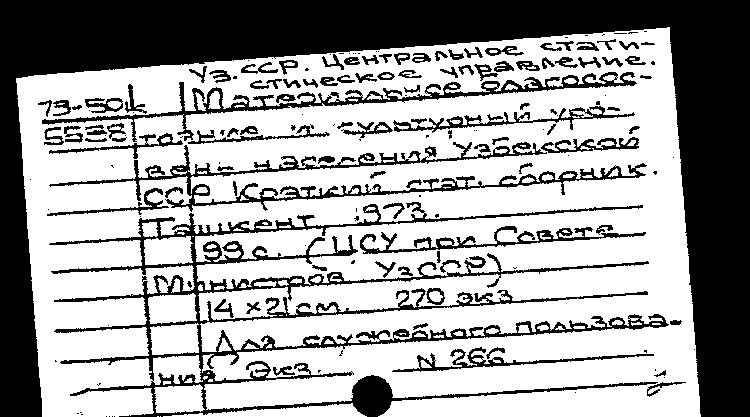 Уз.ССР. Центральное стати-
стическое управление.
73-50к Материальное благосос-
5538 тояние и культурный уро-
вень населения Узбекской
ССР. Краткий стат. сборник.
Ташкент, 1973.
99 с. (ЦСУ при Совете
Министров УзССР)
14 х 21 см. 270 экз
Для служебного пользова-
ния. Экз. N 266.